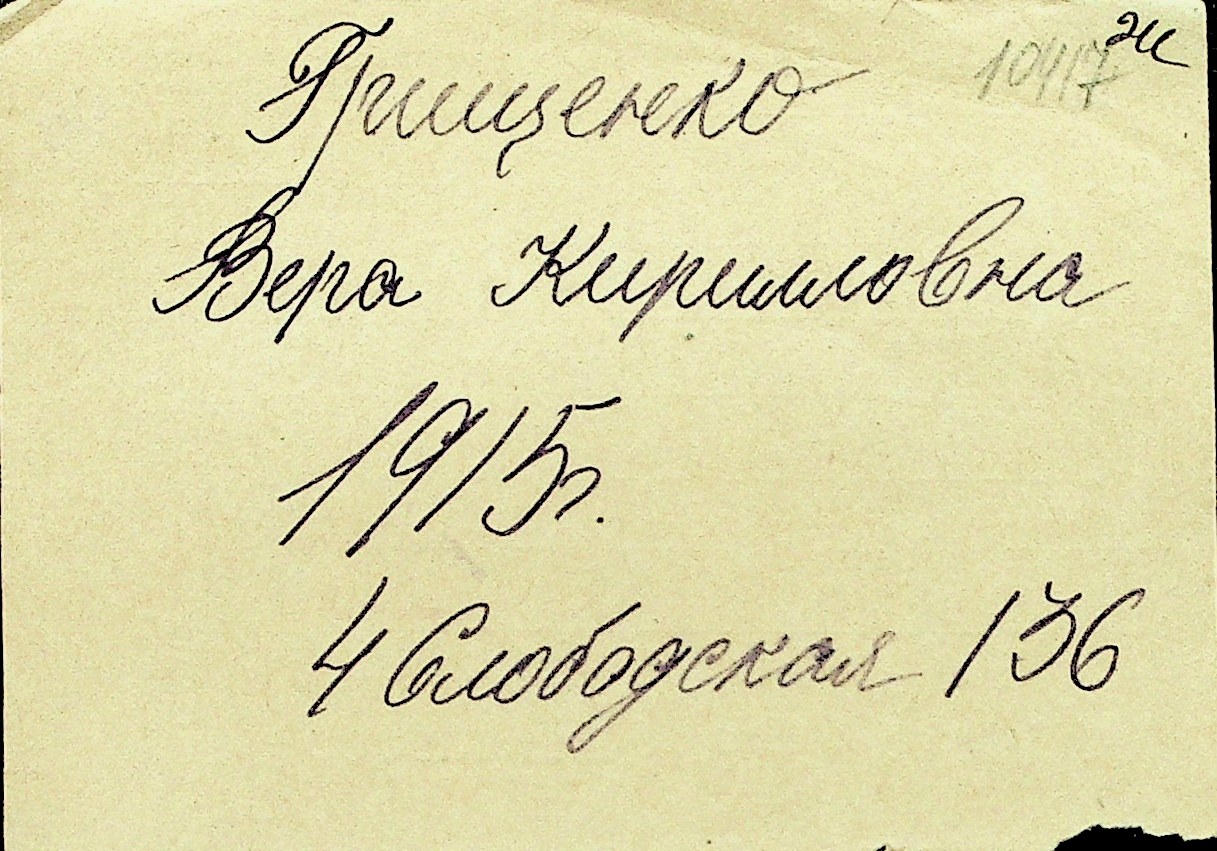 10417 ж
Грищенко
Вера Кирилловна
1915г.
4 Слободская 136